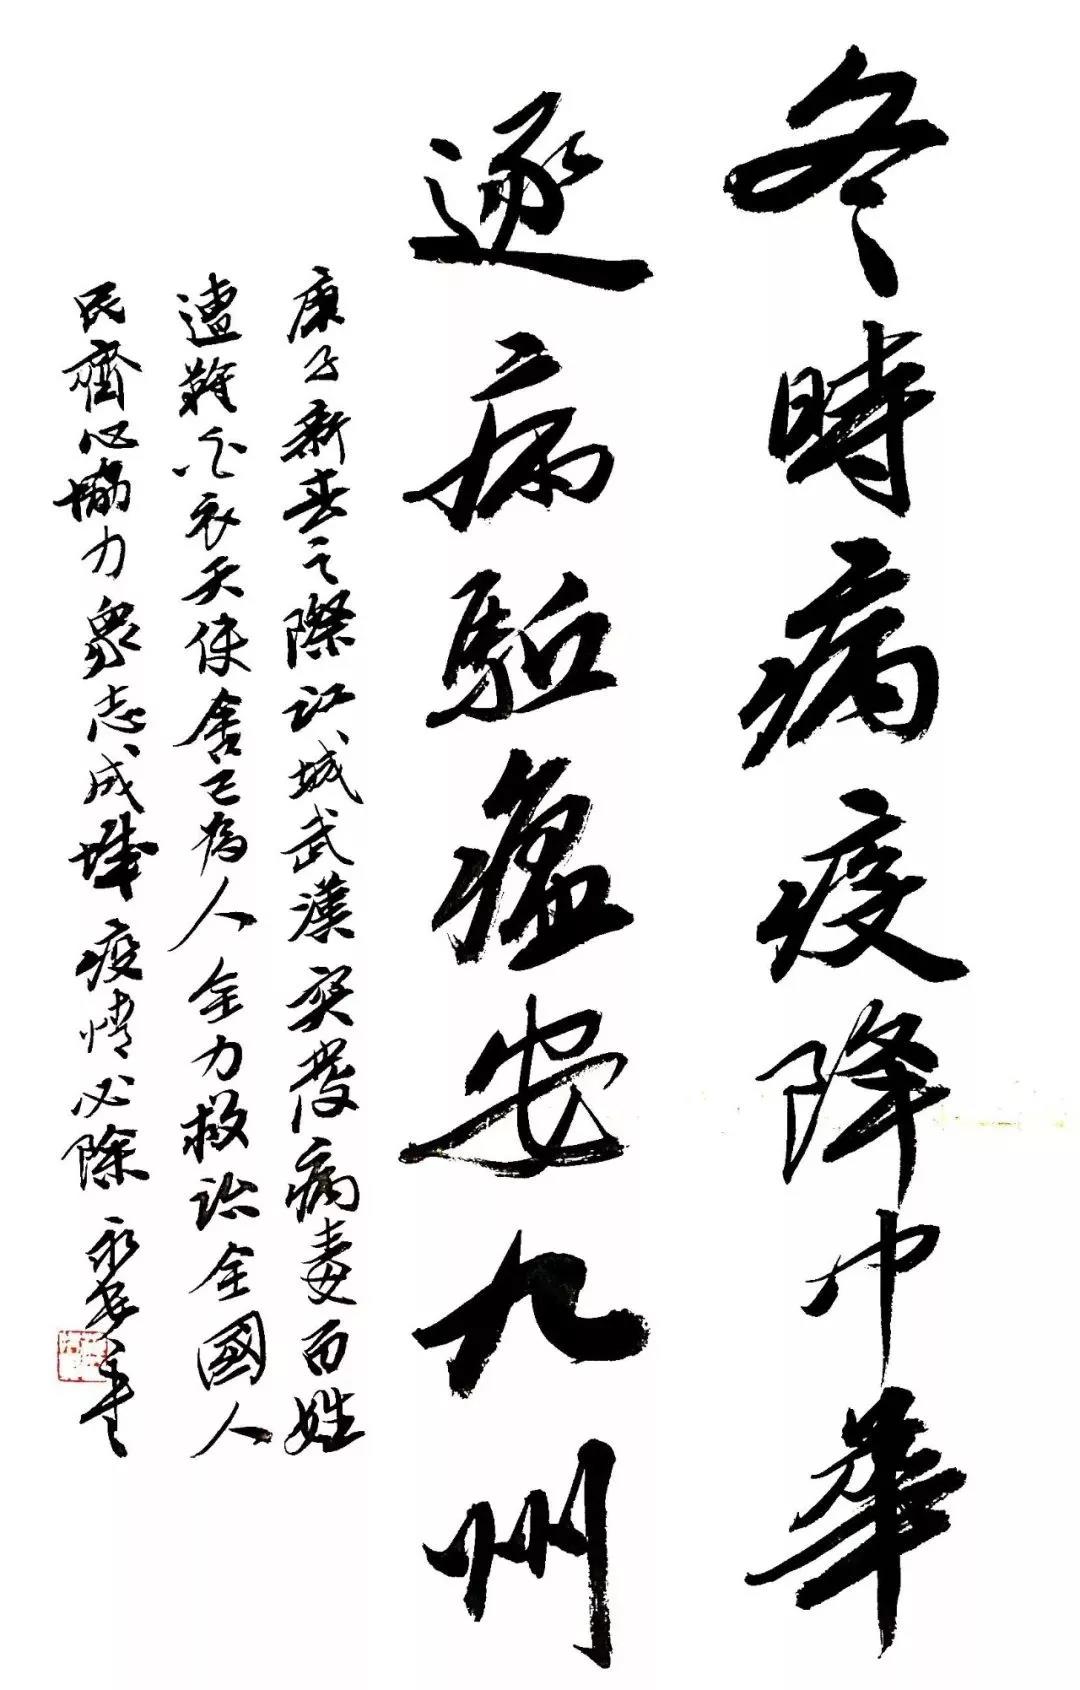 冬時病疫降中華
逐病駈瘟安九州
庚子新春之際江城武漢突發病毒百姓
遭難白衣天使舍己為人全力救治全國人
民齊心協力眾志成城疫情必除永安書